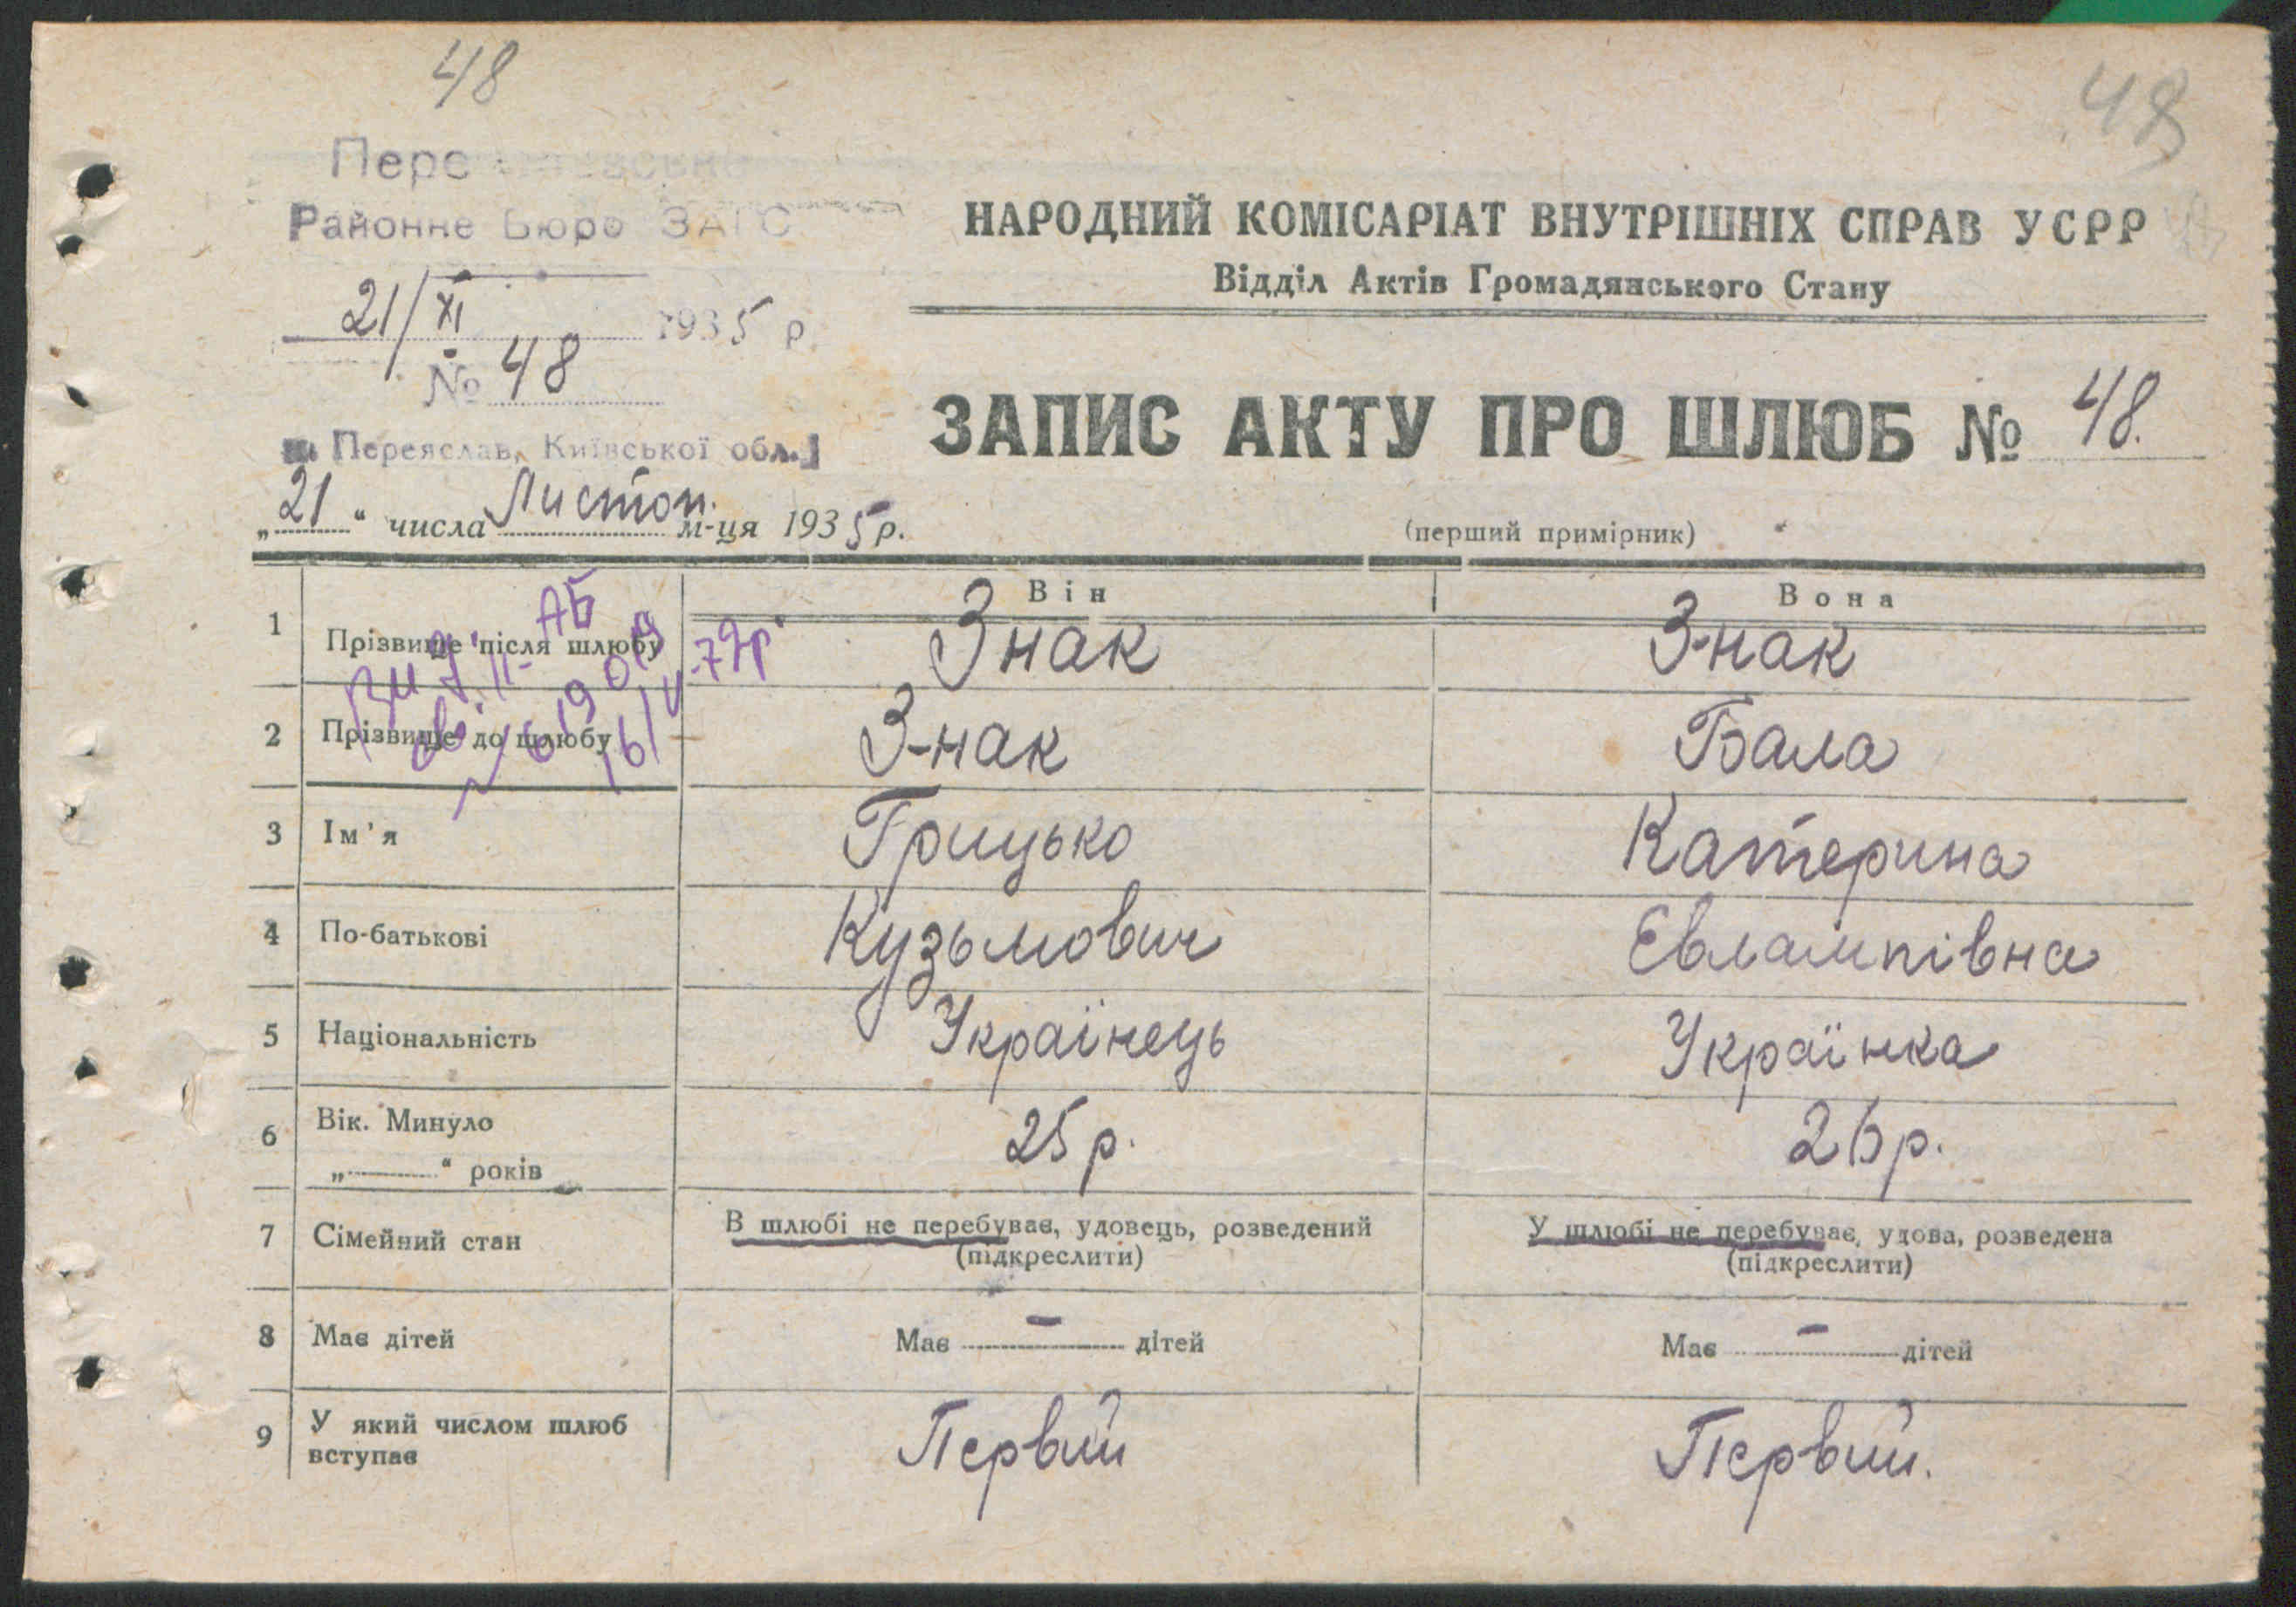 48
48
Пере
Районне Бюро ЗАГС
21/XI 1935 р.
№ 48
Переяслав, Київської обл.
"21" числа Листоп. м-ця 1935 р.
НАРОДНИЙ КОМІСАРІАТ ВНУТРІШНІХ СПРАВ УСРР
Відділ Актів Громадянського Стану
ЗАПИС АКТУ ПРО ШЛЮБ № 48.
(перший примірник)
Він Вона
1 Прізвище після шлюбу Знак Знак
2 Прізвище до шлюбу Знак Бала
3 Ім'я Грицько Катерина
4 По-батькові Кузьмович Евлампівна
5 Національність Українець Українка
6 Вік. Минуло
"——" років 25 р. 26 р.
7 Сімейний стан В шлюбі не перебуває, удовець, розведений У шлюбі не перебуває, удова, розведена
(підкреслити) (підкреслити)
8 Має дітей Має — дітей Має — дітей
9 У який числом шлюб
вступає Первий Первий.